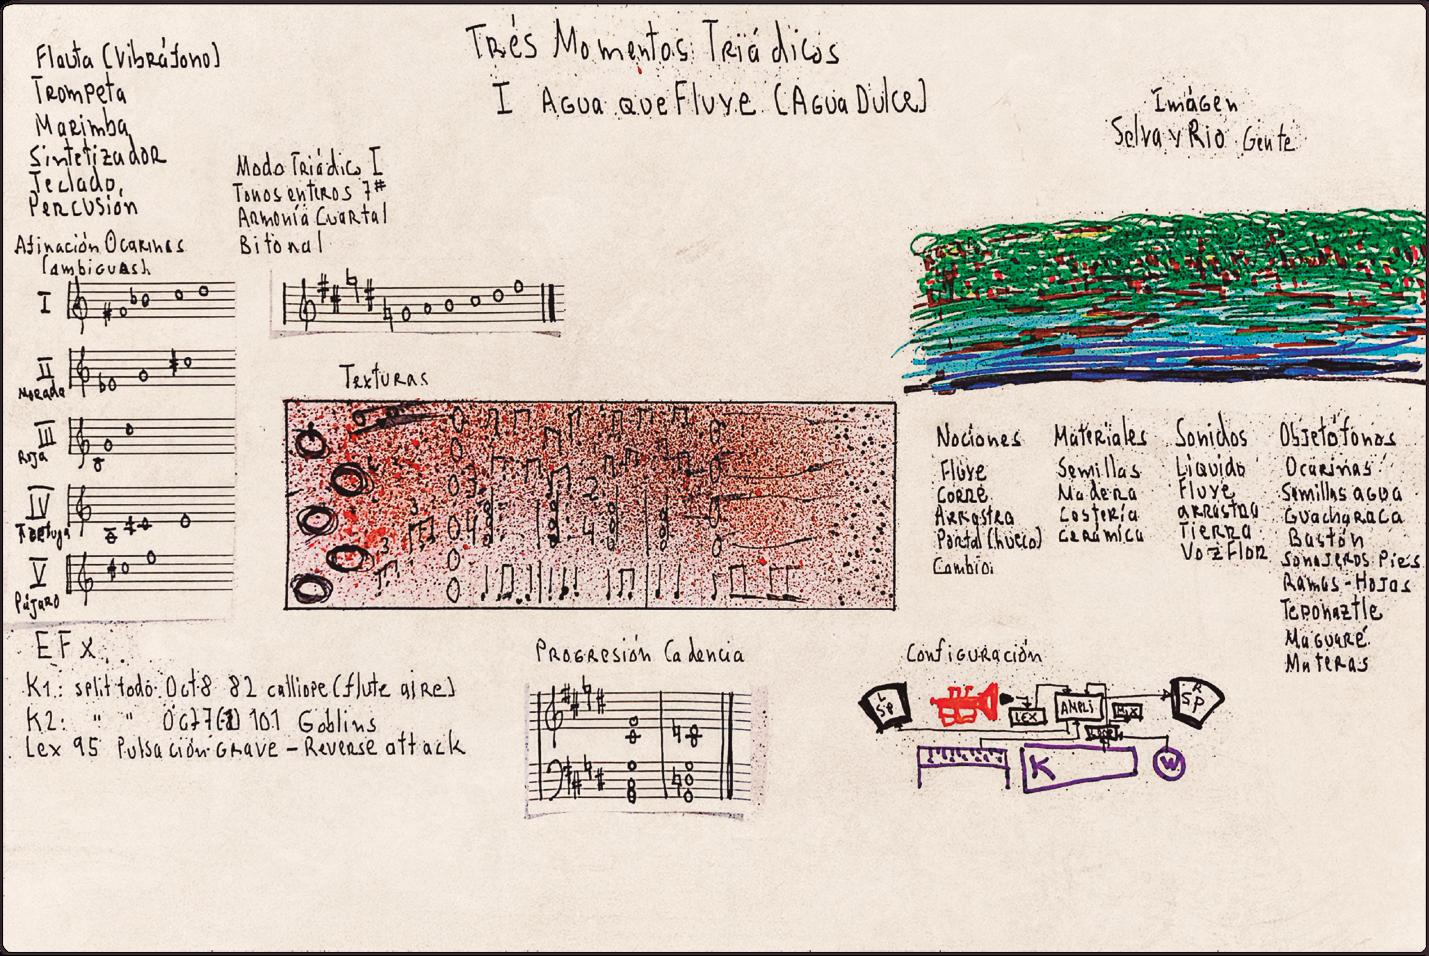 Trés Momentos Triádicos
I Agua que Fluye (Agua Dulce)
Flauta (Vibráfono)
Trompeta
Marimba
Sintetizador
Teclado,
Percusión
Modo Triádico I
Tonos enteros 7#
Armonía Cuartal
Bitonal
Afinación Ocarinas
I
II
Morada
III
Roja
IV
Tortuga
V
Pájaro
Texturas
3
3
3
2
4
4
Imágen
Selva y Rio Gente
Nociones
Fluye
Corre
Arrastra
Portal (hueco)
Cambio
Materiales
Semillas
Madera
Cerámica
Sonidos
Líquido
Fluye
arrastra
Tierra
Voz Flor
Objetófonos
Ocarinas
Semillas agua
Guacharaca
Bastón
Sonajeros Pies
Ramas-Hojas
Teponaztle
Maguaré
Materas
EFx
K1: split todo: Oct8 82 calliope (flute aire)
K2: " " 101 Goblins
Lex 95 Pulsación Grave - Reverse attack
Progresión Cadencia
Configuración
L
SP
LEX
AMPLi
MIX
R
SP
K
W